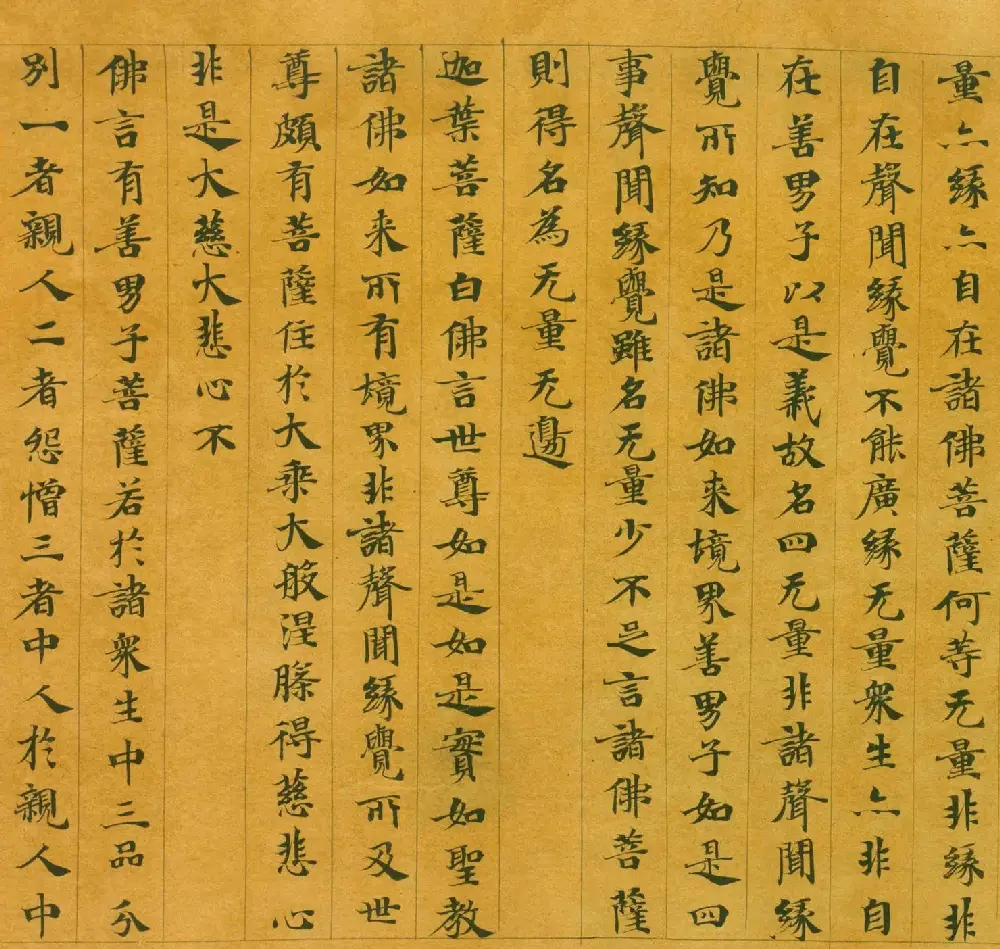 量亦緣亦自在諸佛菩薩何等无量非緣非
自在聲聞緣覺不能廣緣无量眾生亦非自
在善男子以是義故名四无量非諸聲聞緣
覺所知乃是諸佛如来境界善男子如是四
事聲聞緣覺雖名无量少不足言諸佛菩薩
則得名為无量无邊
迦葉菩薩白佛言世尊如是如是實如聖教
諸佛如来所有境界非諸聲聞緣覺所及世
尊頗有菩薩住於大乘大般涅槃得慈悲心
非是大慈大悲心不
佛言有善男子菩薩若於諸眾生中三品分
別一者親人二者怨憎三者中人於親人中